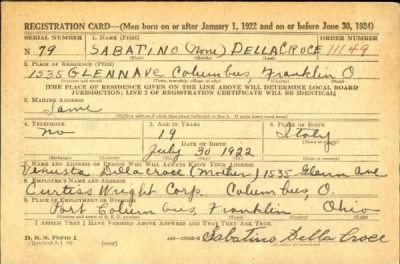 REGISTRATION CARD—(Men born on or after January 1, 1922 and on or before June 30, 1924)
SERIAL NUMBER 1. NAME (Print) ORDER NUMBER
N 79 SABATINO (None) DELLACROCE 11149
(First) (Middle) (Last)
2. PLACE OF RESIDENCE (Print)
1535 GLENN AVE Columbus, Franklin O
(Number and street) (Town, township, village, or city) (County) (State)
[THE PLACE OF RESIDENCE GIVEN ON THE LINE ABOVE WILL DETERMINE LOCAL BOARD
JURISDICTION; LINE 2 OF REGISTRATION CERTIFICATE WILL BE IDENTICAL]
3. MAILING ADDRESS
Same
4. TELEPHONE 5. AGE IN YEARS 6. PLACE OF BIRTH
no 19 Italy
DATE OF BIRTH
July 30 1922
7. NAME AND ADDRESS OF PERSON WHO WILL ALWAYS KNOW YOUR ADDRESS
Venusta Dellacroce (Mother) 1535 Glenn Ave
8. EMPLOYER'S NAME AND ADDRESS
Curtiss Wright Corp. Columbus, O.
9. PLACE OF EMPLOYMENT OR BUSINESS
Port Columbus, Franklin Ohio
I AFFIRM THAT I HAVE VERIFIED ABOVE ANSWERS AND THAT THEY ARE TRUE.
D. S. S. Form 1
Sabatino Della Croce